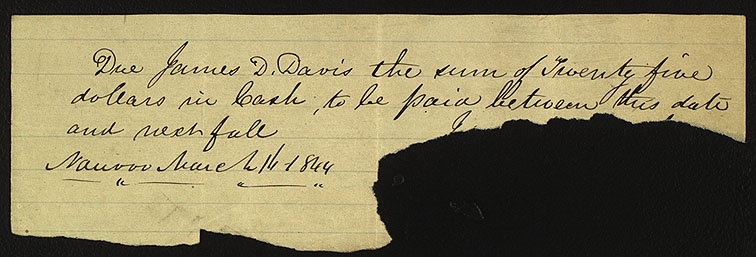 Due James D. Davis the sum of Twenty five
dollars in Cash, to be paid between this date
and next fall
Nauvoo March 14 1844